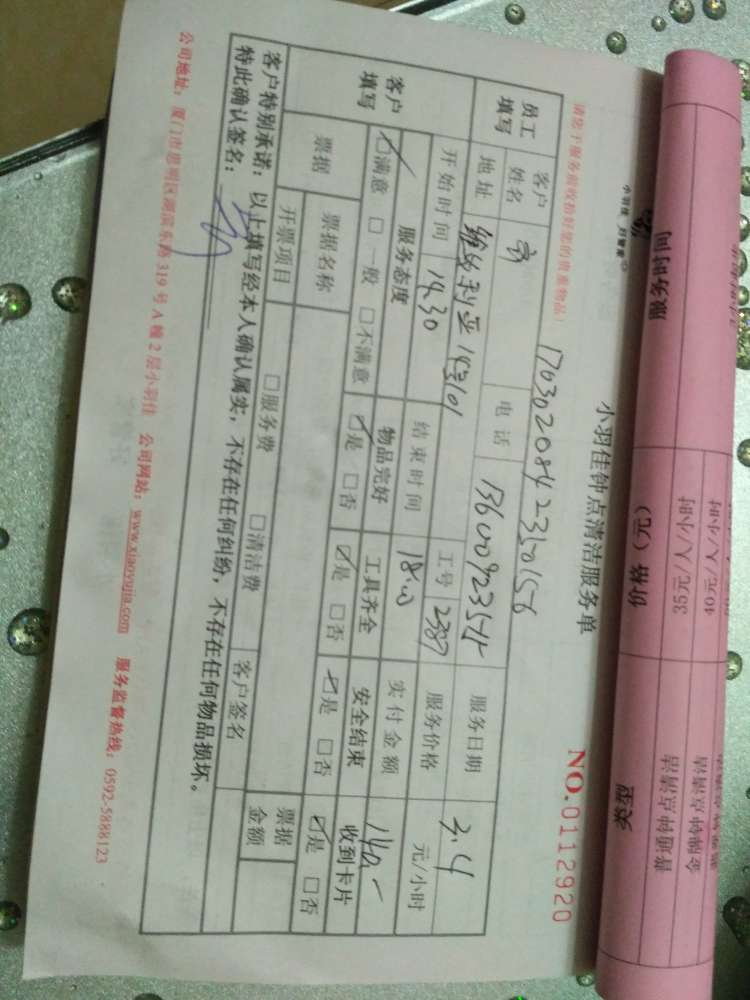 服务时间 价格（元） 类型
35元/人/小时 普通钟点清洁
40元/人/小时 金牌钟点清洁
小羽佳钟点清洁服务单
NO.0112920
请您于服务前收拾好您的贵重物品！
1703020842350156
员工填写 客户姓名 电话 13600923545 服务日期 3.4
地址 维多利亚 14号101 工号 2387 服务价格 元/小时
客户填写 开始时间 14.30 结束时间 18:00 实付金额 140.-
服务态度 物品完好 工具齐全 安全结束 收到卡片
☑满意 □一般 □不满意 ☑是 □否 ☑是 □否 ☑是 □否 ☑是 □否
票据 票据名称 票据金额
开票项目 □服务费 □清洁费 客户签名
客户特别承诺：以上填写经本人确认属实，不存在任何纠纷，不存在任何物品损坏。
特此确认签名：
公司地址：厦门市思明区湖滨东路319号A幢2层小羽佳 公司网站：www.xiaoyujia.com 服务监督热线：0592-5888123